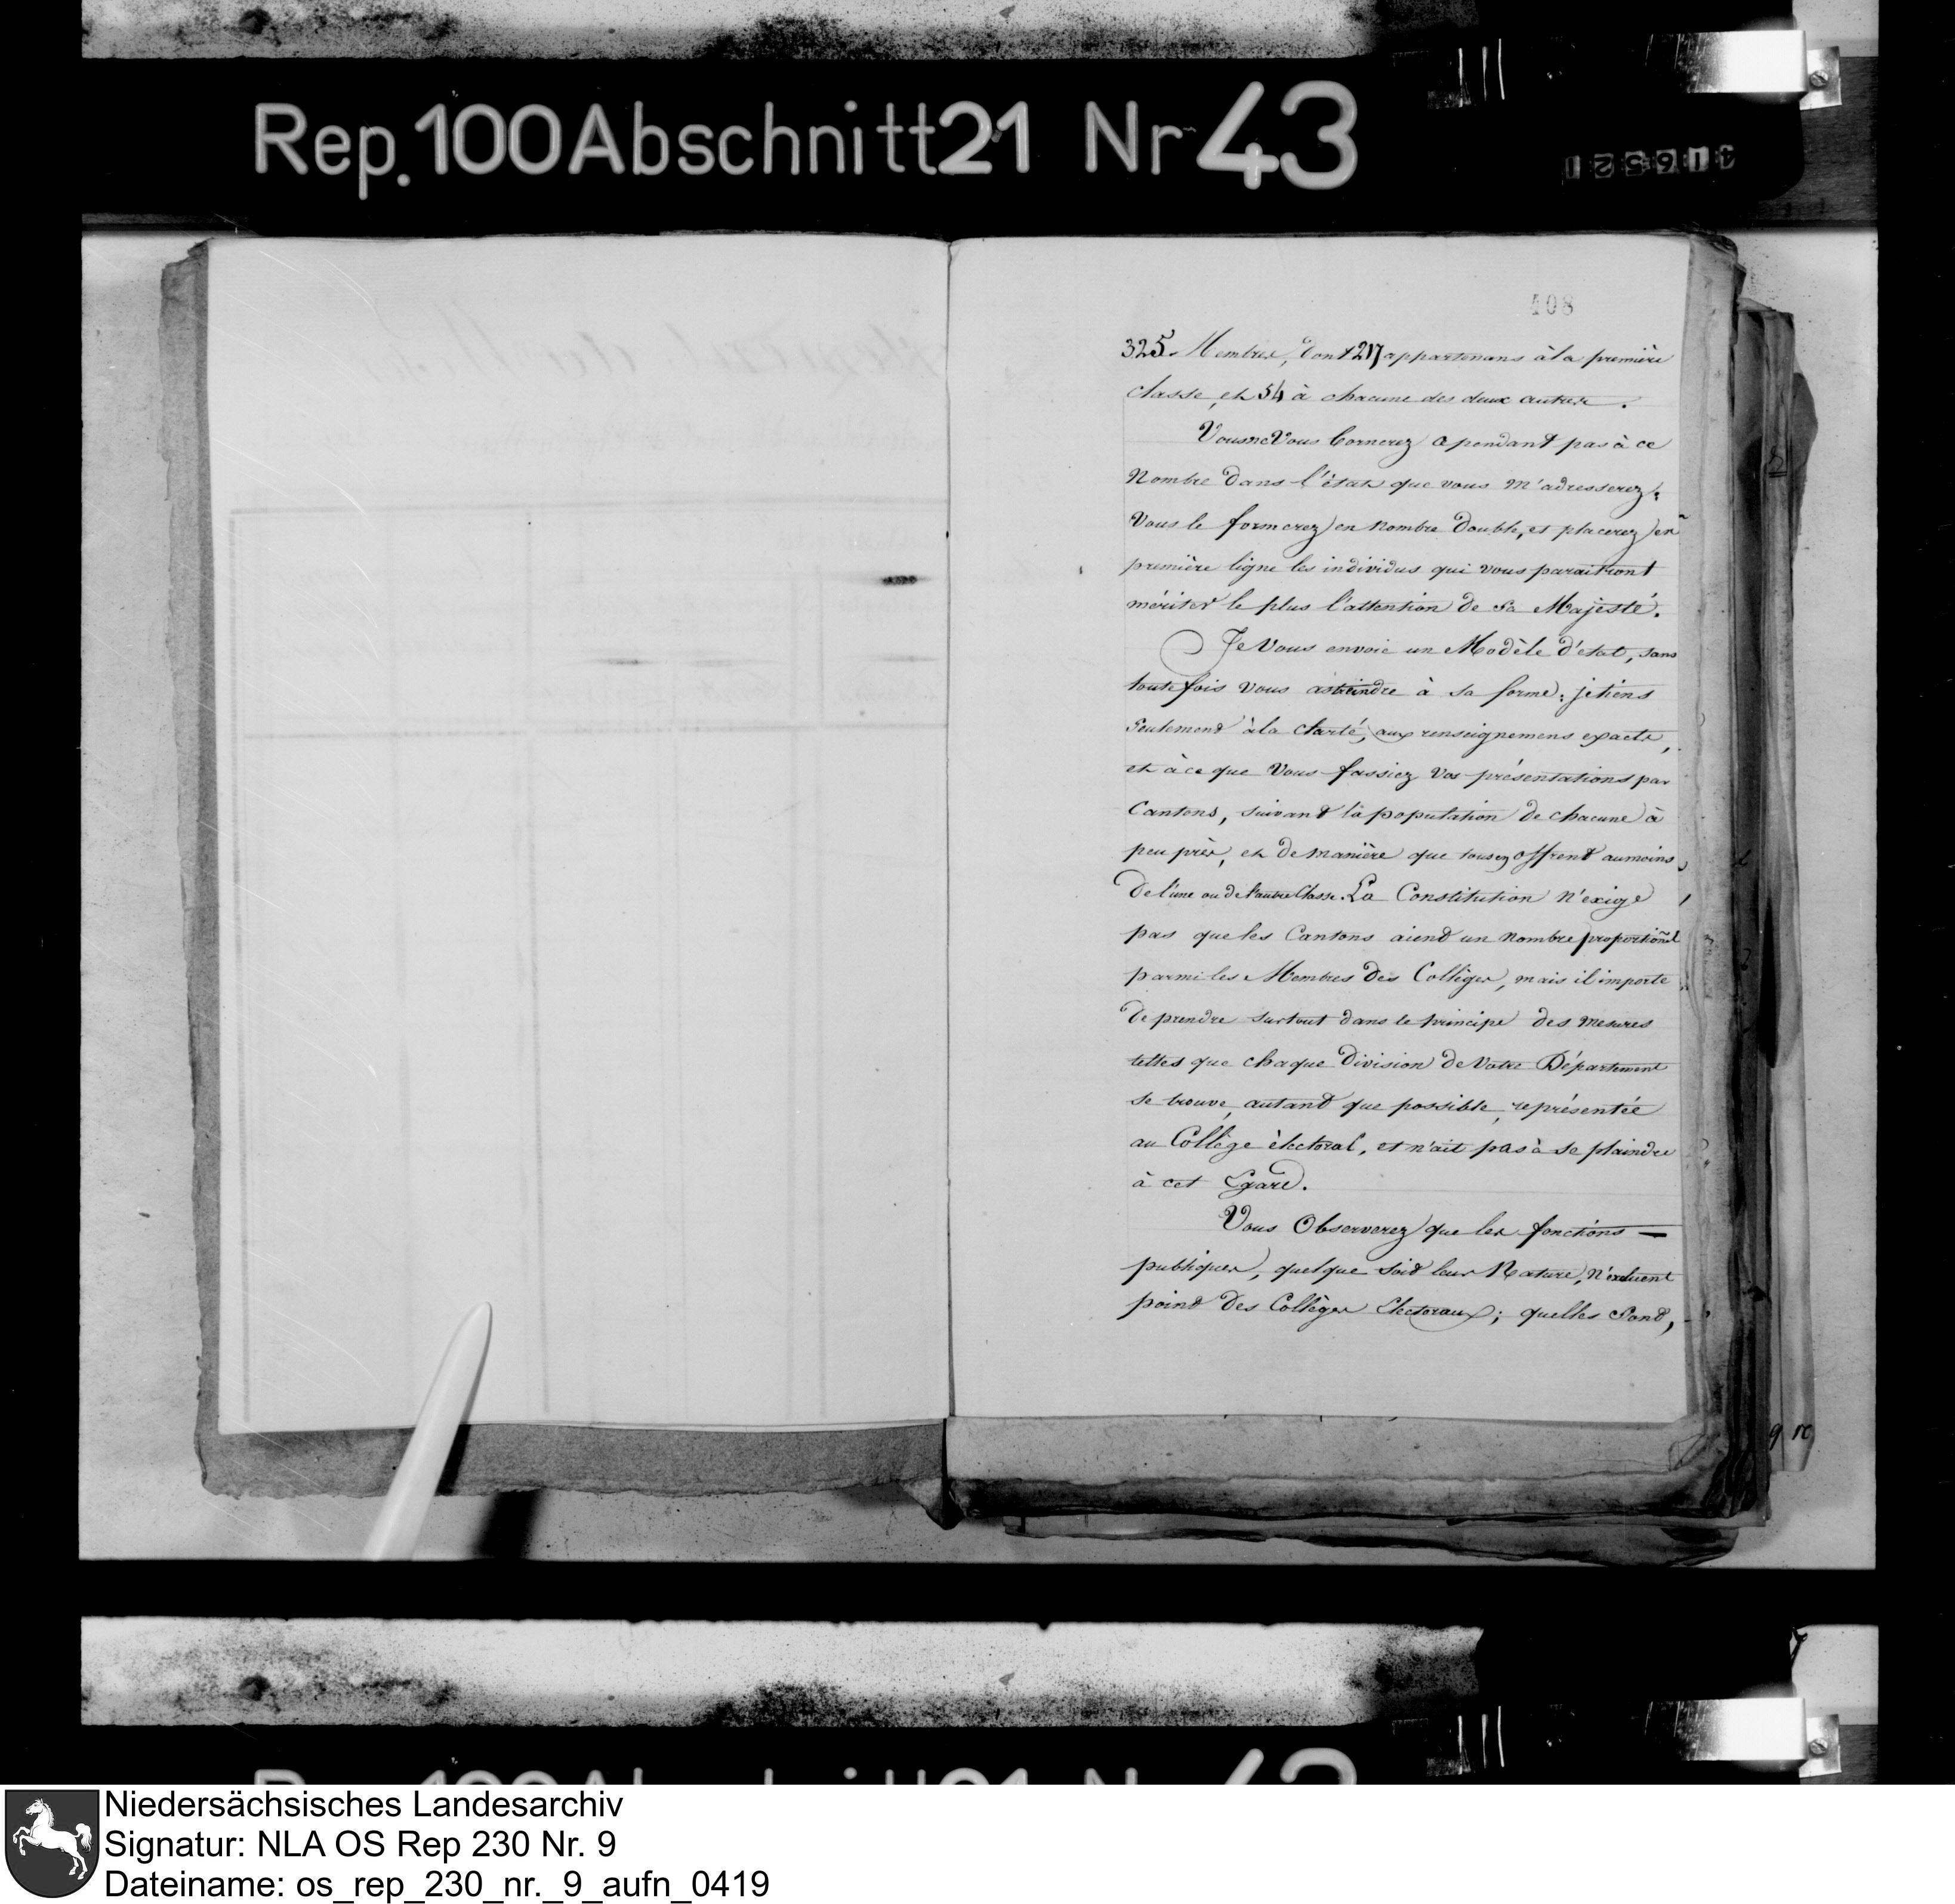 Rep. 100 Abschnitt 21 Nr 43
416521
408
325. Membres, dont 217 appartenans à la première
classe, et 54 à chacune des deux autres.
Vous ne Vous bornerez cependant pas à ce
Nombre dans l'état que vous m'adresserez;
Vous le formerez en nombre double, et placerez en
première ligne les individus qui vous paraitront
mériter le plus l'attention de Sa Majesté.
Je Vous envoie un Modèle d'état, sans
toutefois vous astreindre à sa forme; je tiens
seulement à la clarté, aux renseignemens exacts,
et à ce que Vous fassiez vos présentations par
Cantons, suivant la population de chacune à
peu près, et de manière que tous en offrent au moins
de l'une ou de l'autre Classe. La Constitution n'exige
pas que les Cantons aient un nombre proportionel
parmi les Membres des Collèges, mais il importe
de prendre surtout dans le principe des mesures
telles que chaque Division de Votre Département
se trouve, autant que possible, représentée
au Collège électoral, et n'ait pas à se plaindre
à cet Egard.
Vous Observerez que les fonctions
publiques, quelque soit leur Nature, n'excluent
point des Collèges Electoraux; quelles Sont,
Niedersächsisches Landesarchiv
Signatur: NLA OS Rep 230 Nr. 9
Dateiname: os_rep_230_nr._9_aufn_0419